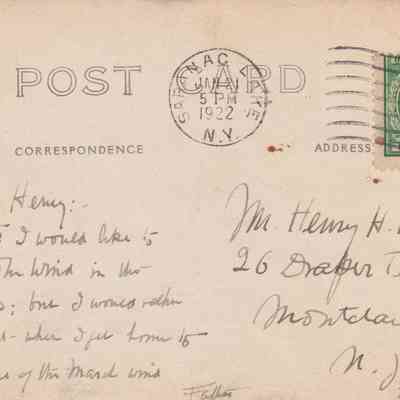 POST CARD
SARANAC LAKE
JAN 21
5 PM
1922
N.Y.
CORRESPONDENCE
ADDRESS
Henry:-
I would like to
the wind in the
; but I would rather
when I get home to
of the March wind
Father
Mr. Henry H.
26 Draper T
Montclai
N. J